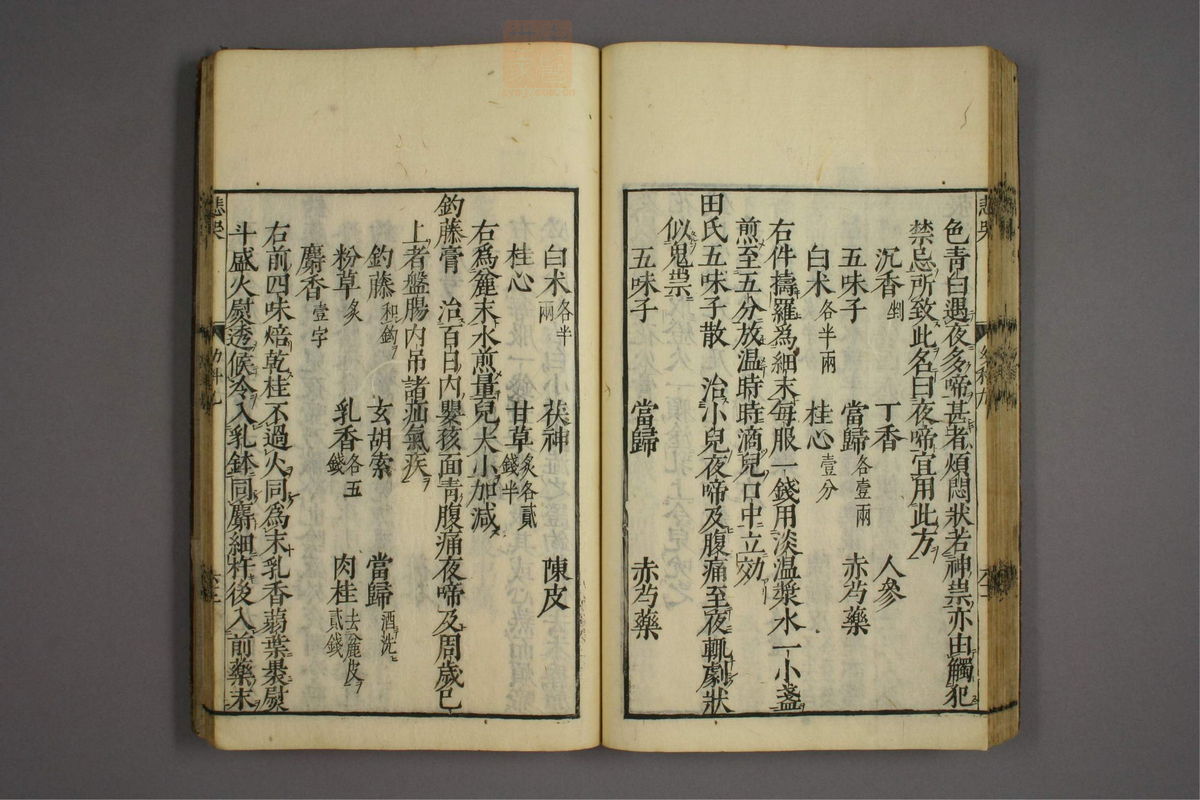 色青曰遇夜多啼甚者煩悶狀若神祟亦由觸犯
禁忌所致此名曰夜啼宜用此方
沉香剉 丁香 人參
五味子 當歸各壹兩 赤芍藥
白朮各半兩 桂心壹分
右件擣羅為細末每服一錢用淡温漿水一小盞
煎至五分放温時時滴兒口中立効
田氏五味子散 治小兒夜啼及腹痛至夜輒劇狀
似鬼祟
五味子 當歸 赤芍藥
白朮各半兩 茯神 陳皮
桂心 甘草炙各貳錢半
右爲麄末水煎量兒大小加減
釣藤膏 治百日內嬰孩面青腹痛夜啼及周歲已
上者盤腸內吊諸疝氣疾
釣藤和鈎 玄胡索 當歸酒洗
粉草炙 乳香各五錢 肉桂去麄皮貳錢
麝香壹字
右前四味焙乾桂不過火同為末乳香蒻葉裹熨
斗盛火熨透候冷入乳鉢同麝細杵後入前藥末
悲哭
悲哭
幼科九